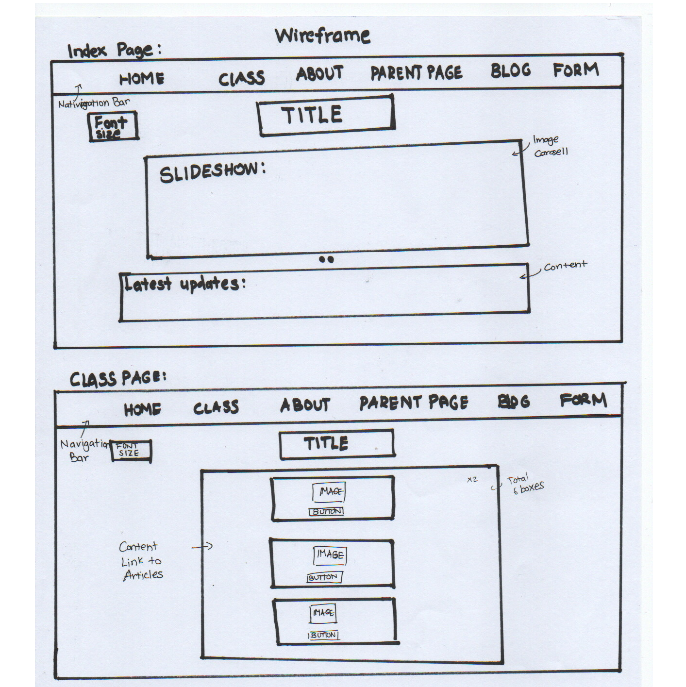 Wireframe
Index Page:
HOME CLASS ABOUT PARENT PAGE BLOG FORM
Nativigation Bar
Font
SIZE
TITLE
Image
Carosell
SLIDESHOW:
Content
Latest updates:
CLASS PAGE:
HOME CLASS ABOUT PARENT PAGE BLOG FORM
Navigation
Bar
FONT
SIZE
TITLE
X2
Total
6 boxes
IMAGE
BUTTON
Content
Link to
Articles
IMAGE
BUTTON
IMAGE
BUTTON